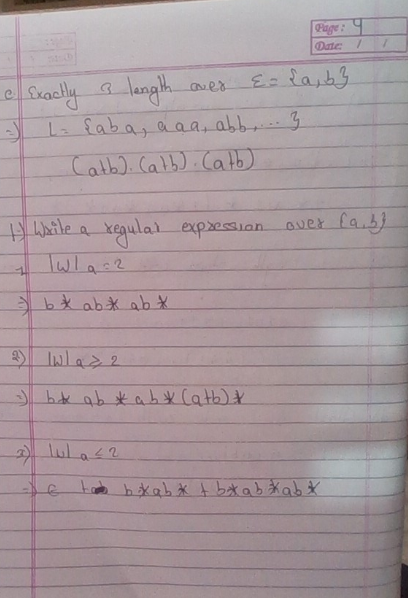 Page: 4
Date: / /
c. Exactly 3 length over Σ = {a, b}
=) L = {aba, aaa, abb, ... }
(a+b).(a+b).(a+b)
1.) Write a regular expression over {a, b}
|w|a = 2
=) b* ab* ab*
2) |w|a ≥ 2
=) b* ab* ab* (a+b)*
3) |w|a ≤ 2
=) ε + b*ab* + b*ab*ab*